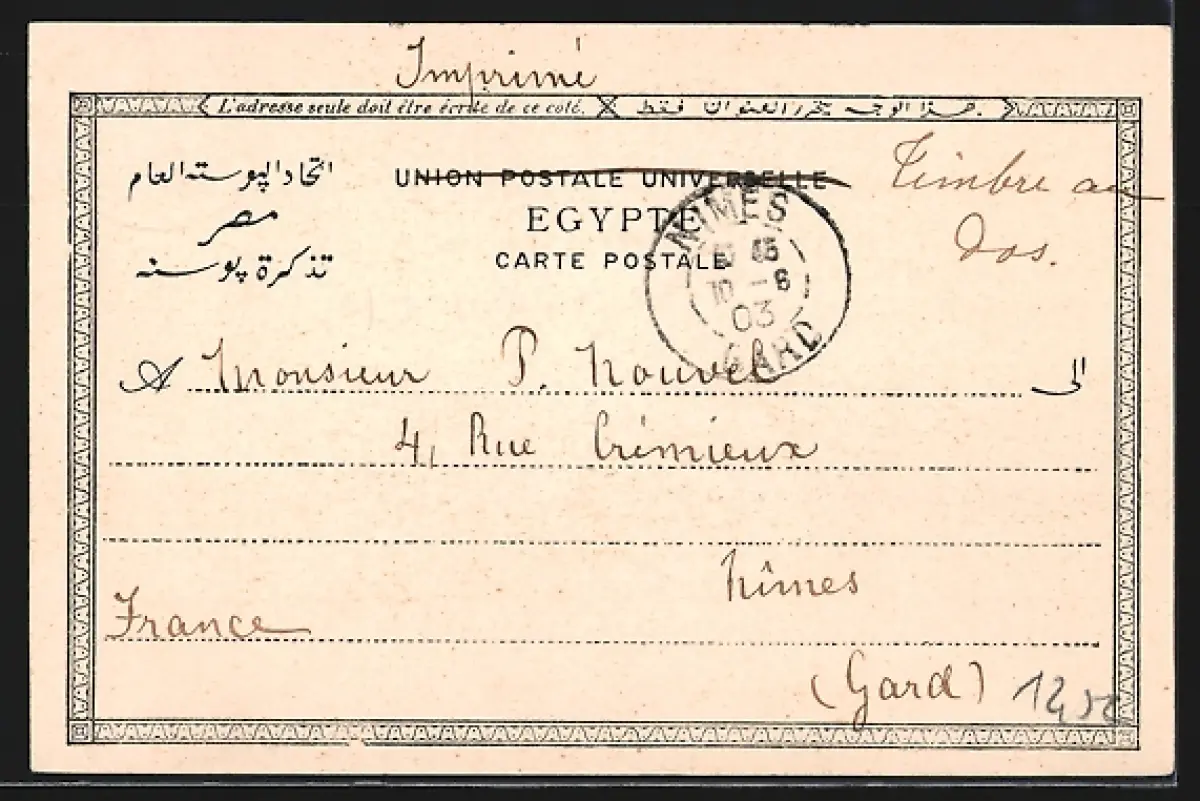 Imprimé
L'adresse seule doit être écrite de ce coté. هذا الوجه يحرر العنوان فقط.
اتحاد البوسته العام
UNION POSTALE UNIVERSELLE
Timbre au
dos.
مصر
EGYPTE
تذكرة بوسته
CARTE POSTALE
NIMES
10 - 6
03
GARD
A Monsieur P. Nouvel الى
4, Rue Crémieux
Nîmes
France
(Gard)